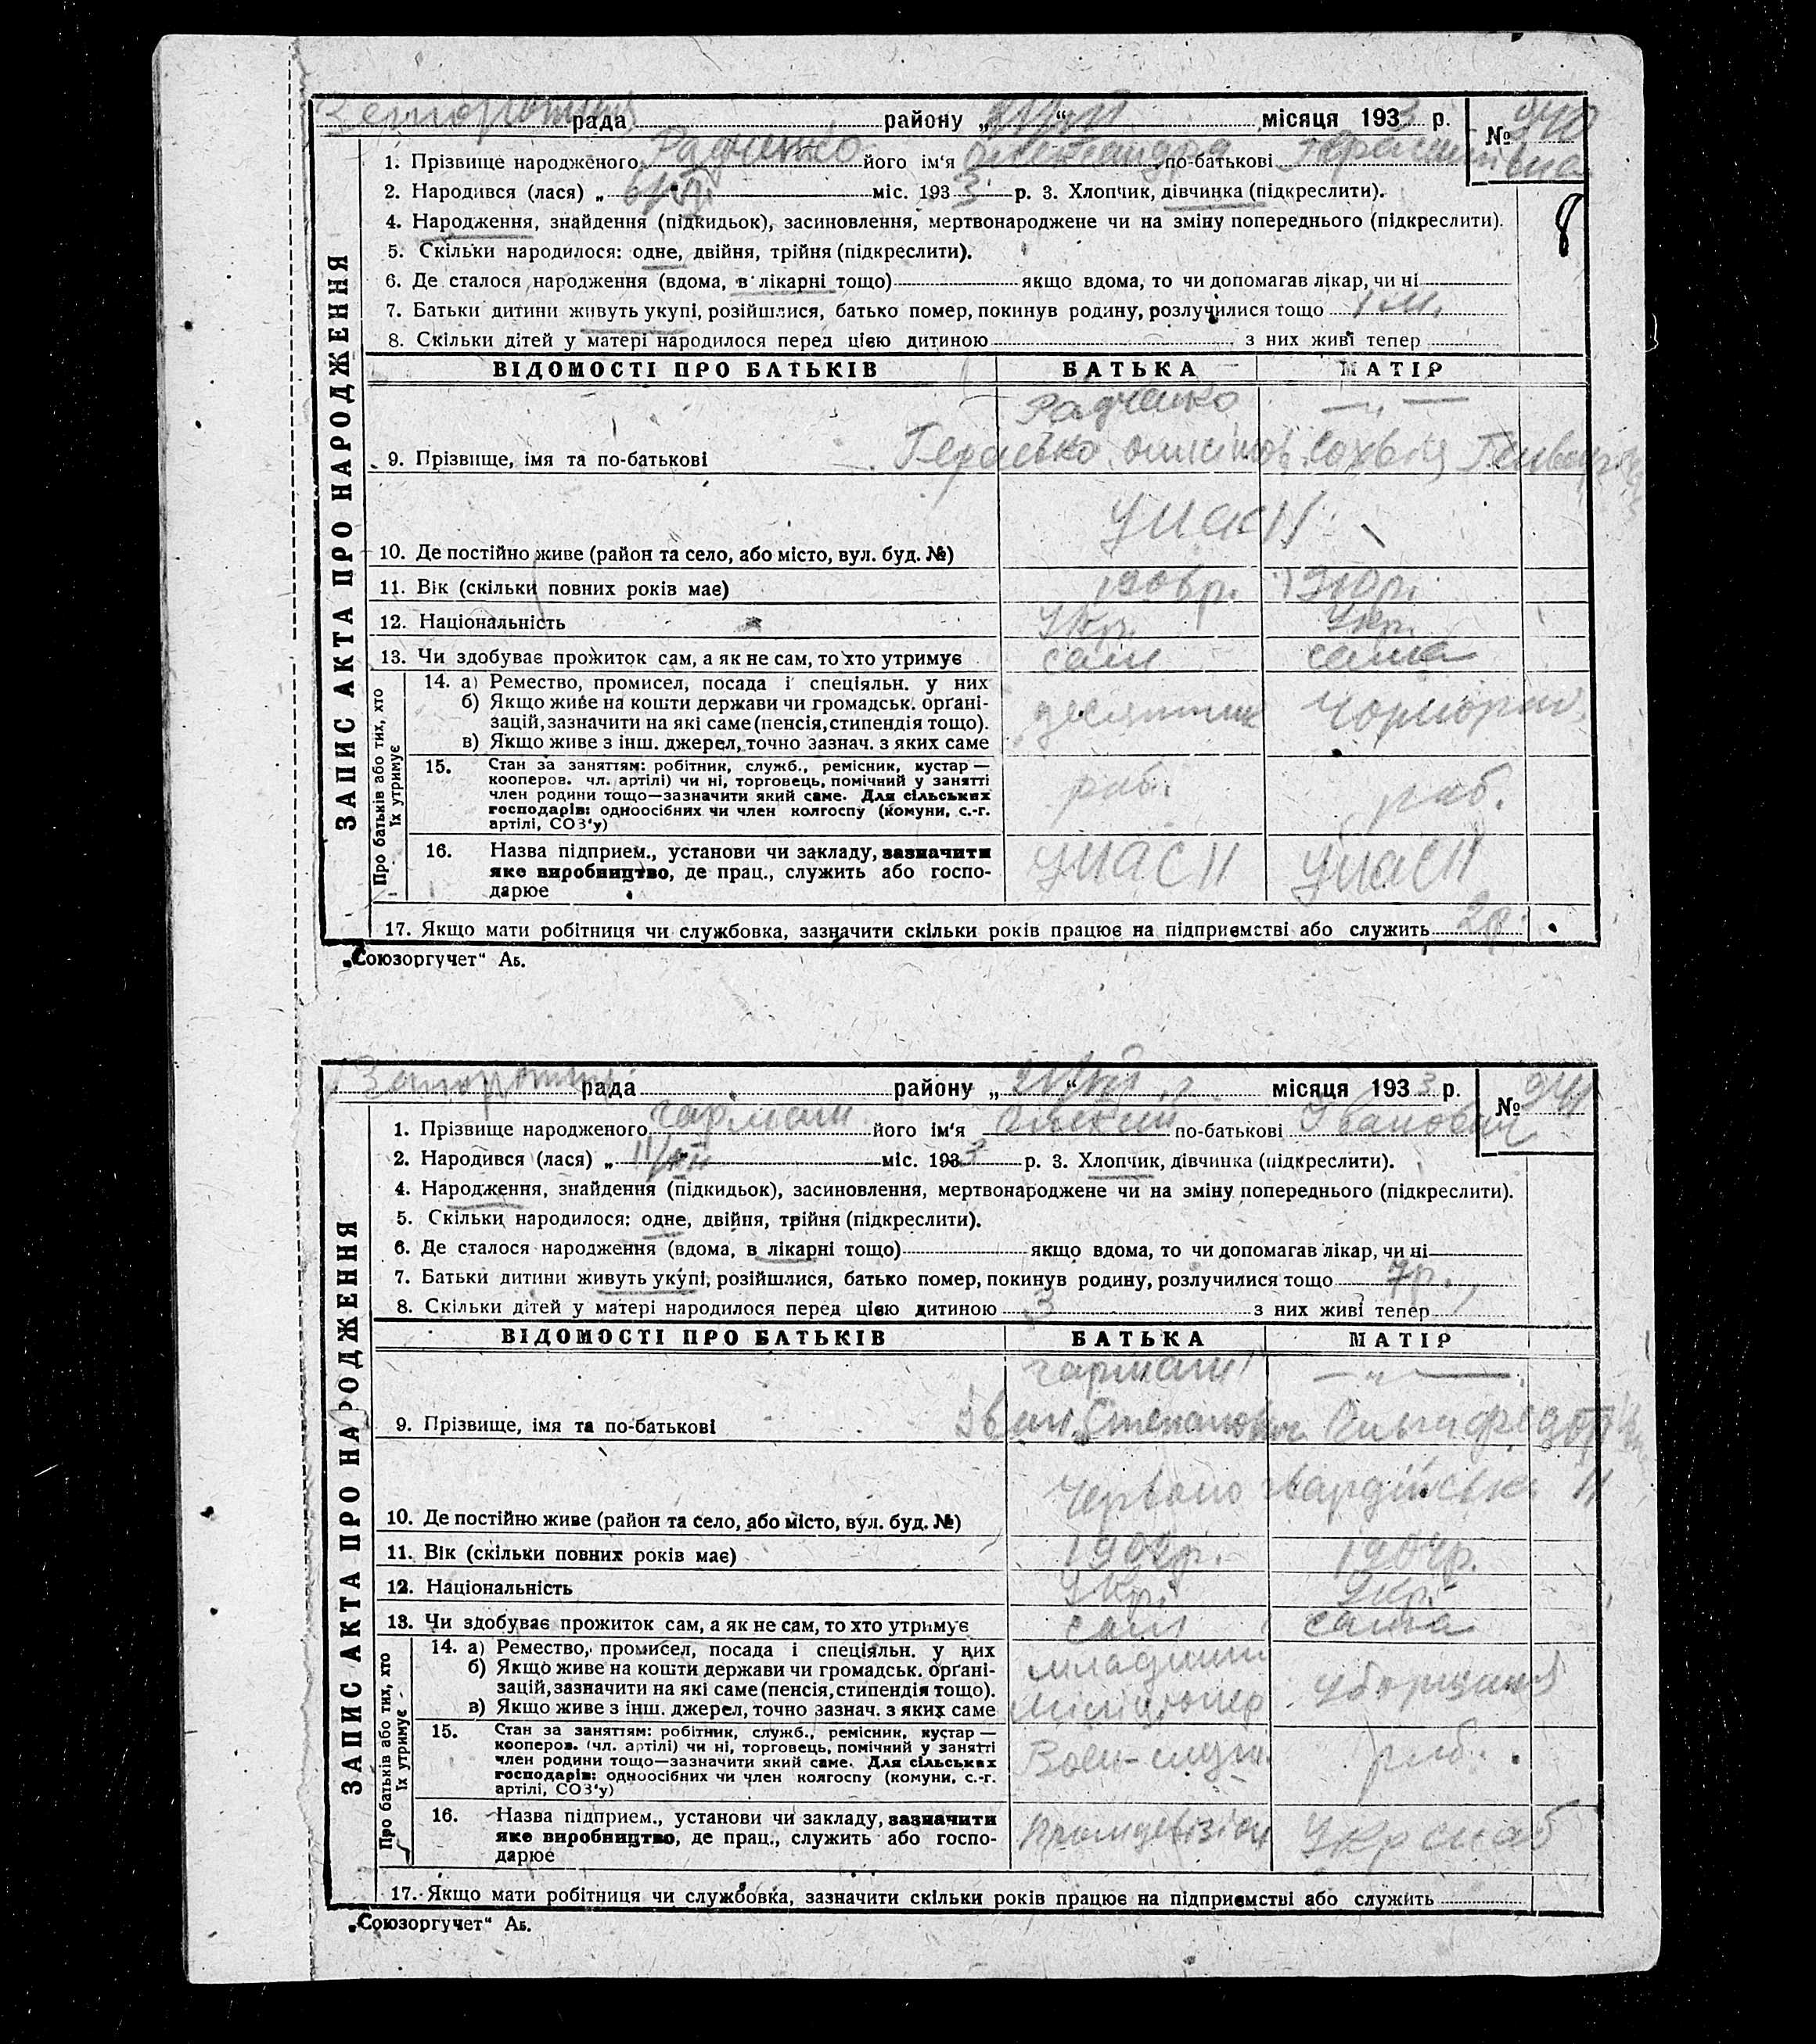 рада району „ “ місяця 1933 р. № 940
ЗАПИС АКТА ПРО НАРОДЖЕННЯ
1. Прізвище народженого Радченко його ім'я Олександра по-батькові
2. Народився (лася) „ міс. 1933 р. 3. Хлопчик, дівчинка (підкреслити).
8
4. Народження, знайдення (підкидьок), засиновлення, мертвонароджене чи на зміну попереднього (підкреслити).
5. Скільки народилося: одне, двійня, трійня (підкреслити).
6. Де сталося народження (вдома, в лікарні тощо) якщо вдома, то чи допомагав лікар, чи ні
7. Батьки дитини живуть укупі, розійшлися, батько помер, покинув родину, розлучилися тощо
8. Скільки дітей у матері народилося перед цією дитиною з них живі тепер
ВІДОМОСТІ ПРО БАТЬКІВ БАТЬКА МАТІР
Радченко — „ —
9. Прізвище, імя та по-батькові
10. Де постійно живе (район та село, або місто, вул. буд. №)
11. Вік (скільки повних років має) 1906р. 1910р.
12. Національність Укр. Укр.
13. Чи здобуває прожиток сам, а як не сам, то хто утримує сам сама
Про батьків або тих, хто їх утримує
14. а) Ремество, промисел, посада і спеціяльн. у них
б) Якщо живе на кошти держави чи громадськ. орґані-
зацій, зазначити на які саме (пенсія, стипендія тощо).
в) Якщо живе з інш. джерел, точно зазнач. з яких саме
десятник
15. Стан за заняттям: робітник, служб., ремісник, кустар —
кооперов. чл. артілі) чи ні, торговець, помічний у занятті
член родини тощо—зазначити який саме. Для сільських
господарів: одноосібних чи член колгоспу (комуни, с.-г.
артілі, СОЗ'у)
роб. роб.
16. Назва підприєм., установи чи закладу, зазначити
яке виробництво, де прац., служить або госпо-
дарює
17. Якщо мати робітниця чи службовка, зазначити скільки років працює на підприємстві або служить 2р.
„Союзоргучет“ Аб.
рада району „ “ місяця 1933 р. № 941
ЗАПИС АКТА ПРО НАРОДЖЕННЯ
1. Прізвище народженого Гармаш його ім'я по-батькові Іванович
2. Народився (лася) „ міс. 1933 р. 3. Хлопчик, дівчинка (підкреслити).
4. Народження, знайдення (підкидьок), засиновлення, мертвонароджене чи на зміну попереднього (підкреслити).
5. Скільки народилося: одне, двійня, трійня (підкреслити).
6. Де сталося народження (вдома, в лікарні тощо) якщо вдома, то чи допомагав лікар, чи ні
7. Батьки дитини живуть укупі, розійшлися, батько помер, покинув родину, розлучилися тощо 7р.
8. Скільки дітей у матері народилося перед цією дитиною 3 з них живі тепер
ВІДОМОСТІ ПРО БАТЬКІВ БАТЬКА МАТІР
Гармаш — „ —
9. Прізвище, імя та по-батькові Іван Степанович
Червоногвардійська 11
10. Де постійно живе (район та село, або місто, вул. буд. №)
11. Вік (скільки повних років має) 1904р.
12. Національність Укр. Укр.
13. Чи здобуває прожиток сам, а як не сам, то хто утримує сам сама
Про батьків або тих, хто їх утримує
14. а) Ремество, промисел, посада і спеціяльн. у них
б) Якщо живе на кошти держави чи громадськ. орґані-
зацій, зазначити на які саме (пенсія, стипендія тощо).
в) Якщо живе з інш. джерел, точно зазнач. з яких саме
міліціонер
15. Стан за заняттям: робітник, служб., ремісник, кустар —
кооперов. (чл. артілі) чи ні, торговець, помічний у занятті
член родини тощо—зазначити який саме. Для сільських
господарів: одноосібних чи член колгоспу (комуни, с.-г.
артілі, СОЗ'у)
роб.
16. Назва підприєм., установи чи закладу, зазначити
яке виробництво, де прац., служить або госпо-
дарює
Укрснаб
17. Якщо мати робітниця чи службовка, зазначити скільки років працює на підприємстві або служить
„Союзоргучет“ Аб.